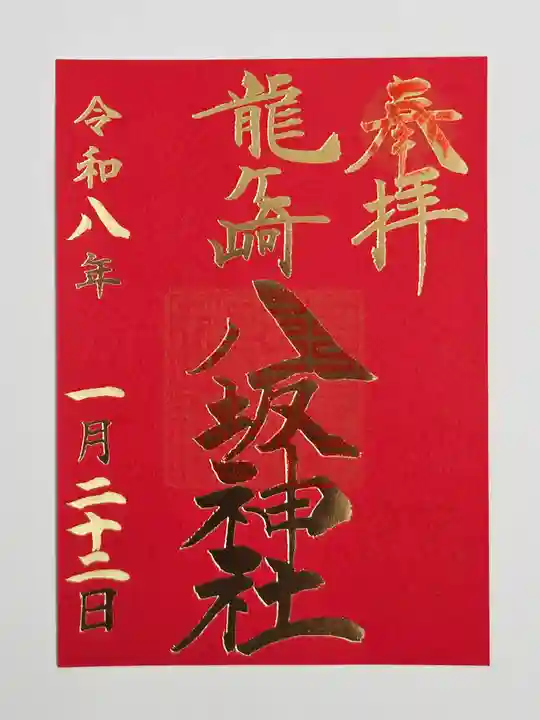 奉拝
龍ケ崎
八坂神社
令和八年
一月二十二日